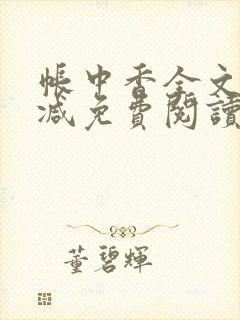 帳中香全文
減免費閱讀
董碧輝